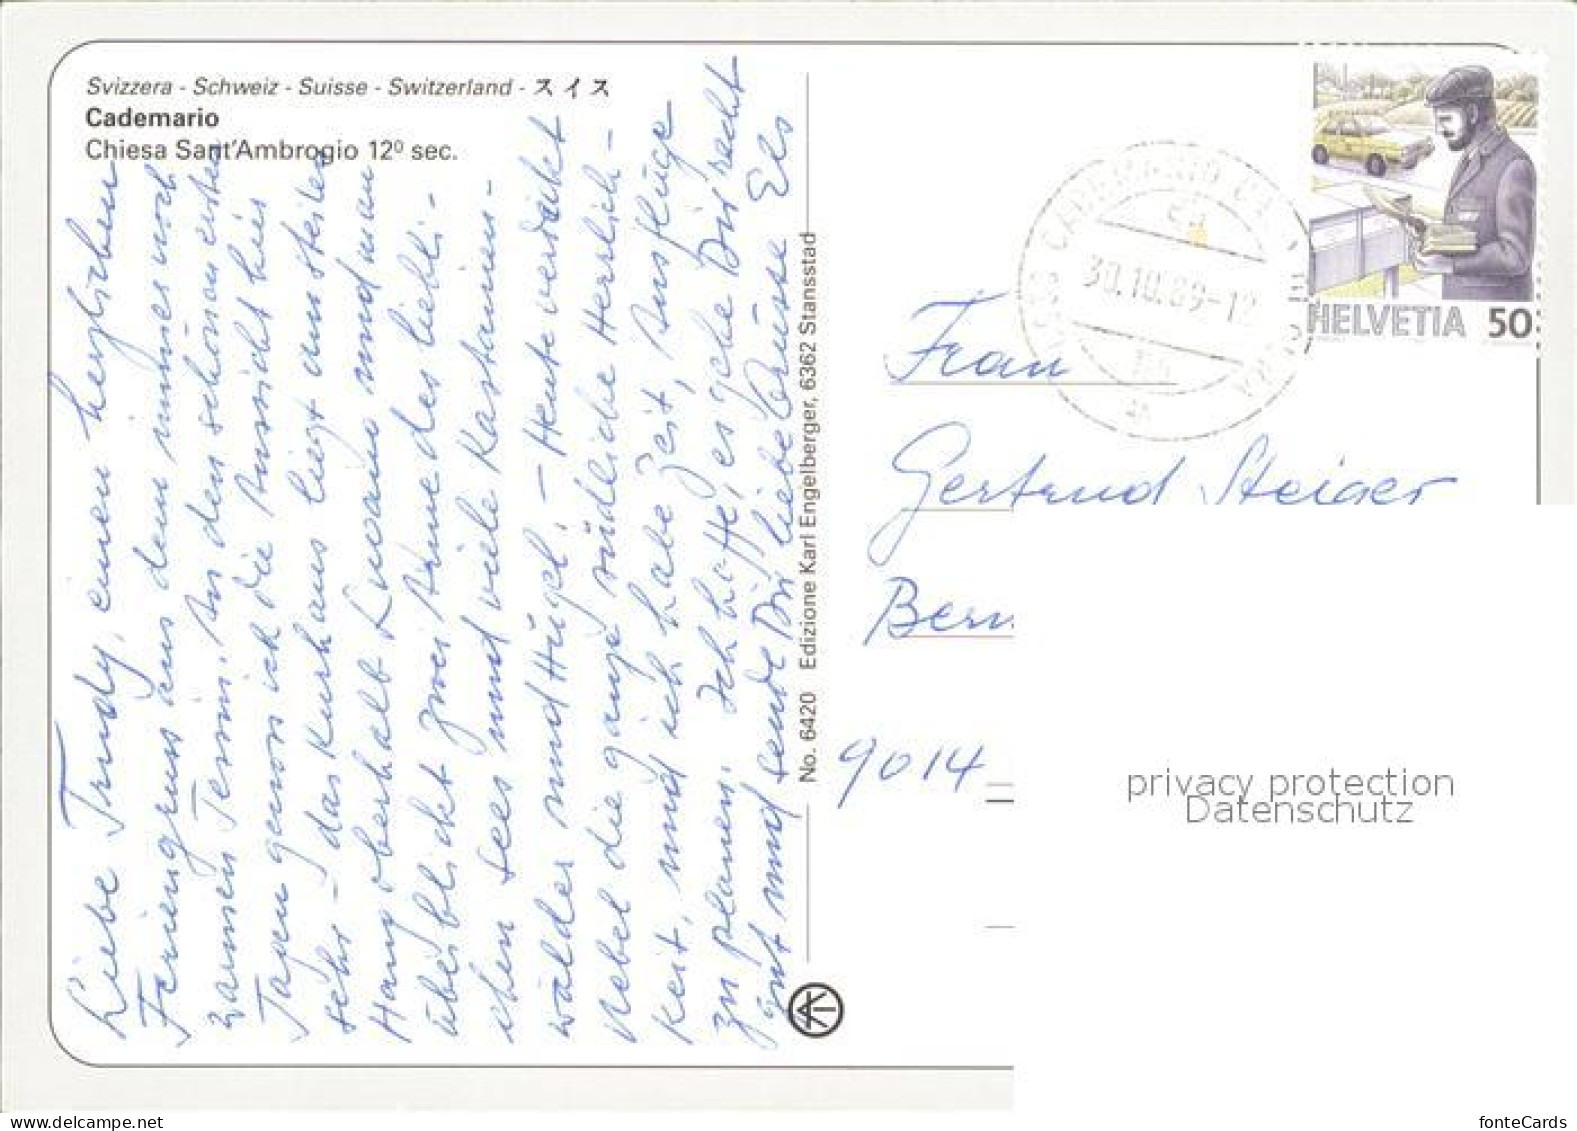 Svizzera - Schweiz - Suisse - Switzerland - スイス
Cademario
Chiesa Sant'Ambrogio 12º sec.
Liebe Trudy, einen herzlichen
Feriengruss aus dem immer noch
warmen Tessin. An den schönen ersten
Tagen genoss ich die Aussicht hier
sehr - das Kurhaus liegt am steilen
Hang oberhalb Lugano und man
überblickt zwei Arme des liebli-
chen Sees und viele Kastanien-
wälder und Hügel. - Heute verdeckt
Nebel die ganze südliche Herrlich-
keit, und ich habe Zeit, Ausflüge
zu planen. Ich hoffe, es gehe Dir recht
gut und sende Dir liebe Grüsse Els
No. 6420 Edizione Karl Engelberger, 6362 Stansstad
30.10.89-12
HELVETIA 50
Frau
Gertrud Steiger
Bern
9014
privacy protection
Datenschutz
fonteCards